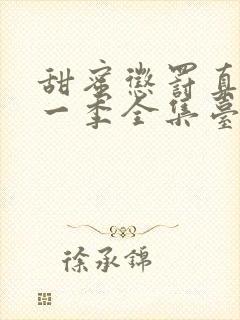 甜蜜懲罰真
一季全集臺
徐承錦